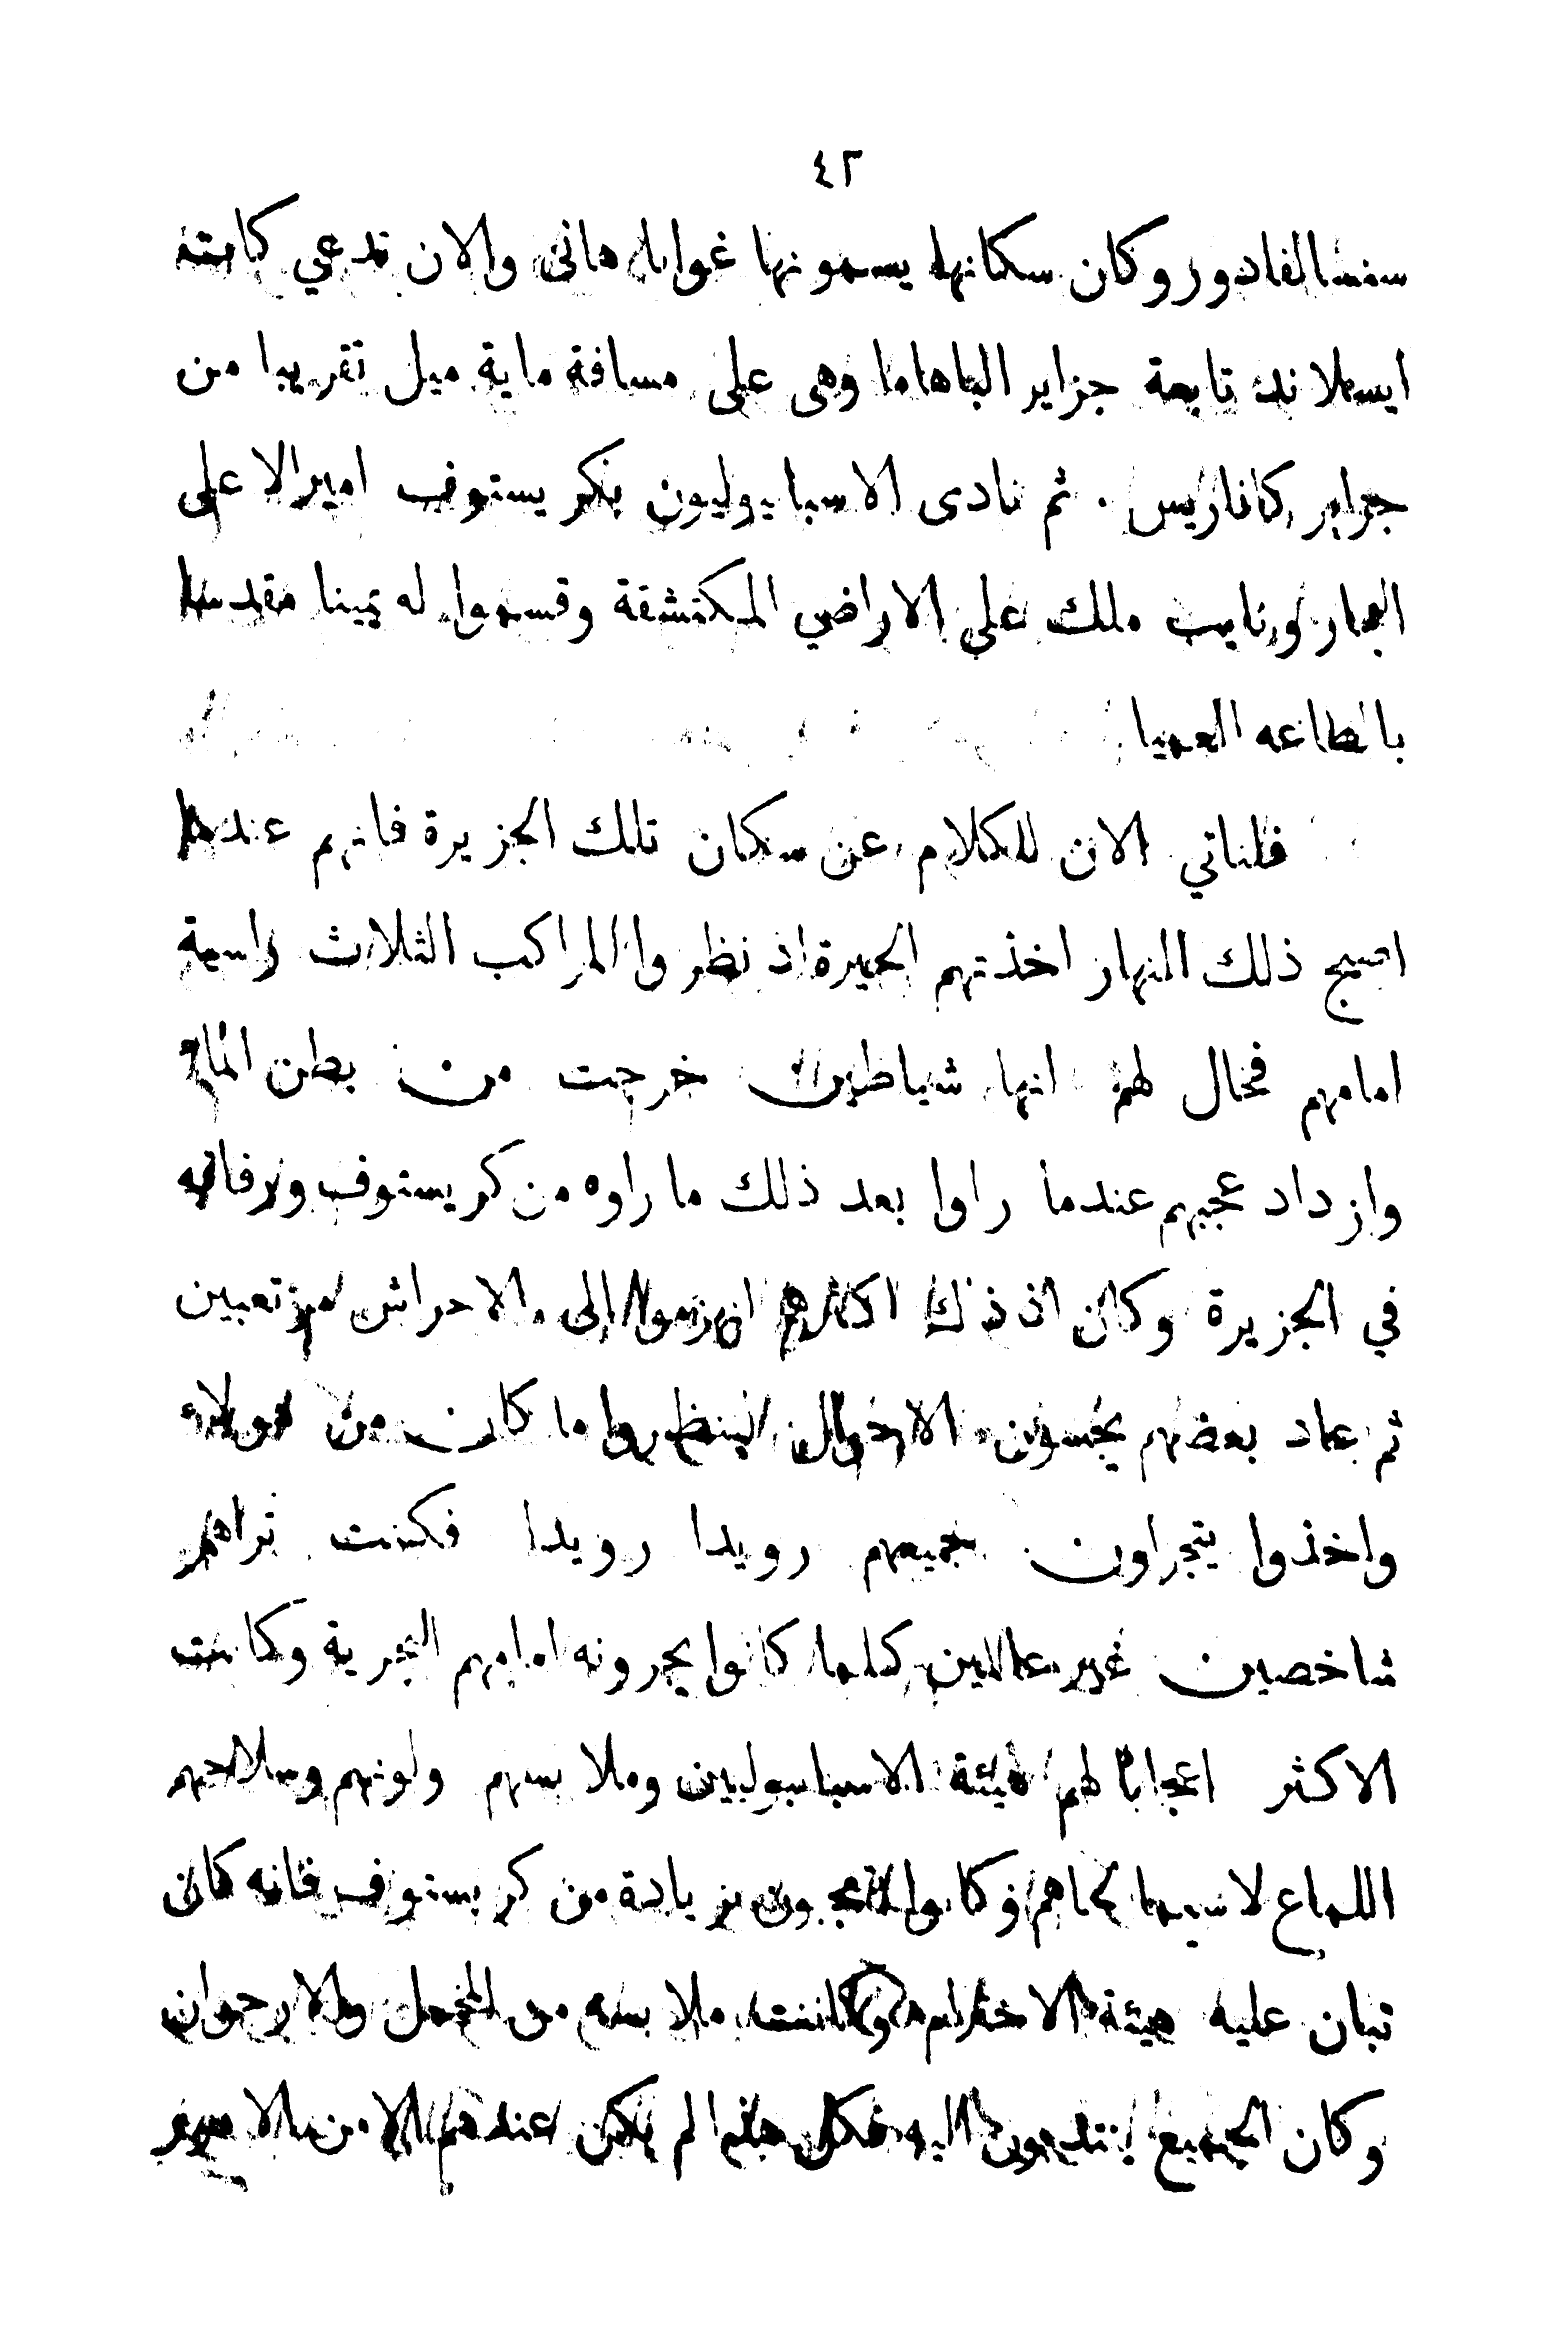 ٤٢
سنسالفادور وكان سكانها يسمونها غواناهاني والان تدعي كات
ايسلاند تابعة جزاير الباهاما وهى على مسافة ماية ميل تقريبا من
جزاير كاناريس . ثم نادى الاسبانيوليون بكريستوف اميرالا على
البحار ونايب ملك على الاراضي المكتشفة وقسموا له يمينا مقدسا
بالطاعه العميا
فلناتي الان للكلام عن سكان تلك الجزيرة فانهم عندما
اصبح ذلك النهار اخذتهم الحيرة اذ نظروا المراكب الثلاث راسية
امامهم فخال لهم انها شياطين خرجت من بطن الماء
وازداد عجبهم عندما راوا بعد ذلك ما راوه من كريستوف ورفاقه
في الجزيرة وكان اذ ذك اكثرهم انهزموا الى الاحراش مرتعبين
ثم عاد بعضهم يجسون الاحوال لينظروا ما كان من هولاء
واخذوا يتجراون جميعهم رويدا رويدا فكنت تراهم
شاخصين غير عالمين كلما كانوا يجرونه امامهم البحرية وكانت
الاكثر اعجابا لهم هيئة الاسبانيوليين وملابسهم ولونهم وسلاحهم
اللماع لاسيما لحاهم وكانوا يتعجبون بزيادة من كريستوف فانه كان
تبان عليه هيئة الاحترام وكانت ملابسه من المخمل والارجوان
وكان الجميع ينتبهون اليه فكل هذا لم يكن عندهم الا من الامور